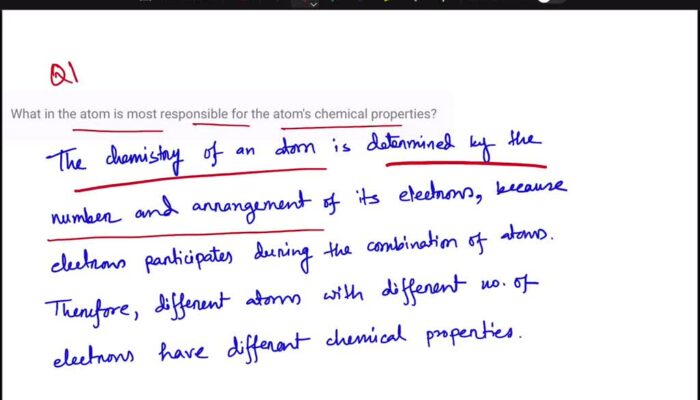 Q1
What in the atom is most responsible for the atom's chemical properties?
The chemistry of an atom is determined by the
number and arrangement of its electrons, because
electrons participates during the combination of atoms.
Therefore, different atoms with different no. of
electrons have different chemical properties.